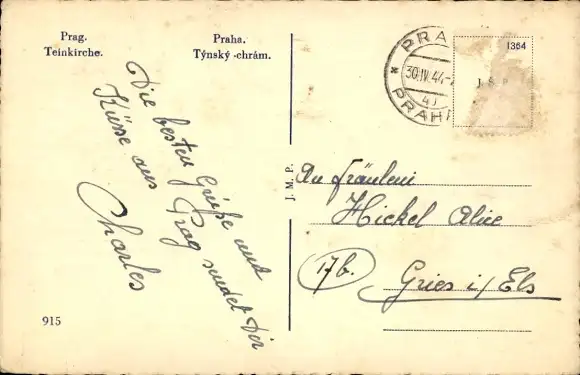 Prag.
Teinkirche.
Praha.
Týnský -chrám.
Die besten Grüße und
Küsse aus Prag sendet Dir
Charles
915
J. M. P.
PRA
30.IV.44
PRAHA
1364
An Fräulein
Hickel Alice
17b.
Gries i/Els